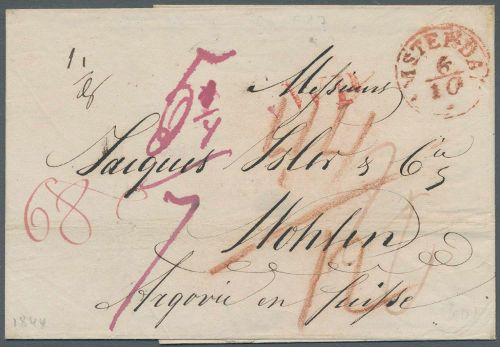 AMSTERDAM
6/10
Messieurs
5 1/4
Jacques Isler & Cie
68
7
Wohlen
Argovie en Suisse
1844